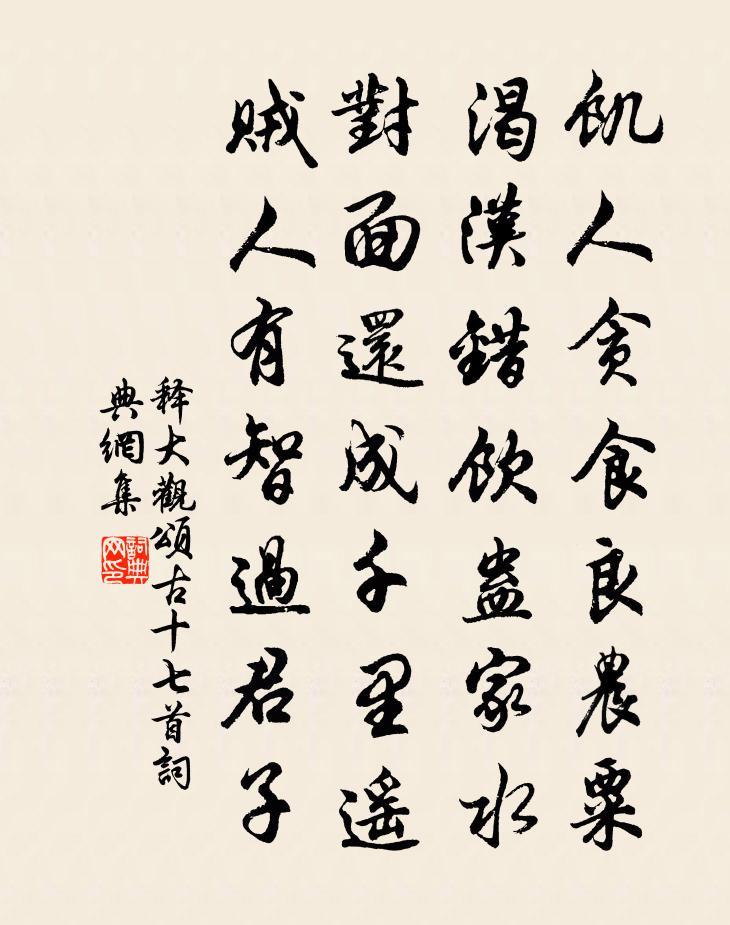 飢人貪食良農粟
渴漢錯飲蠱家水
對面還成千里遥
賊人有智過君子
释大觀頌古十七首詞
典網集
詞典网印